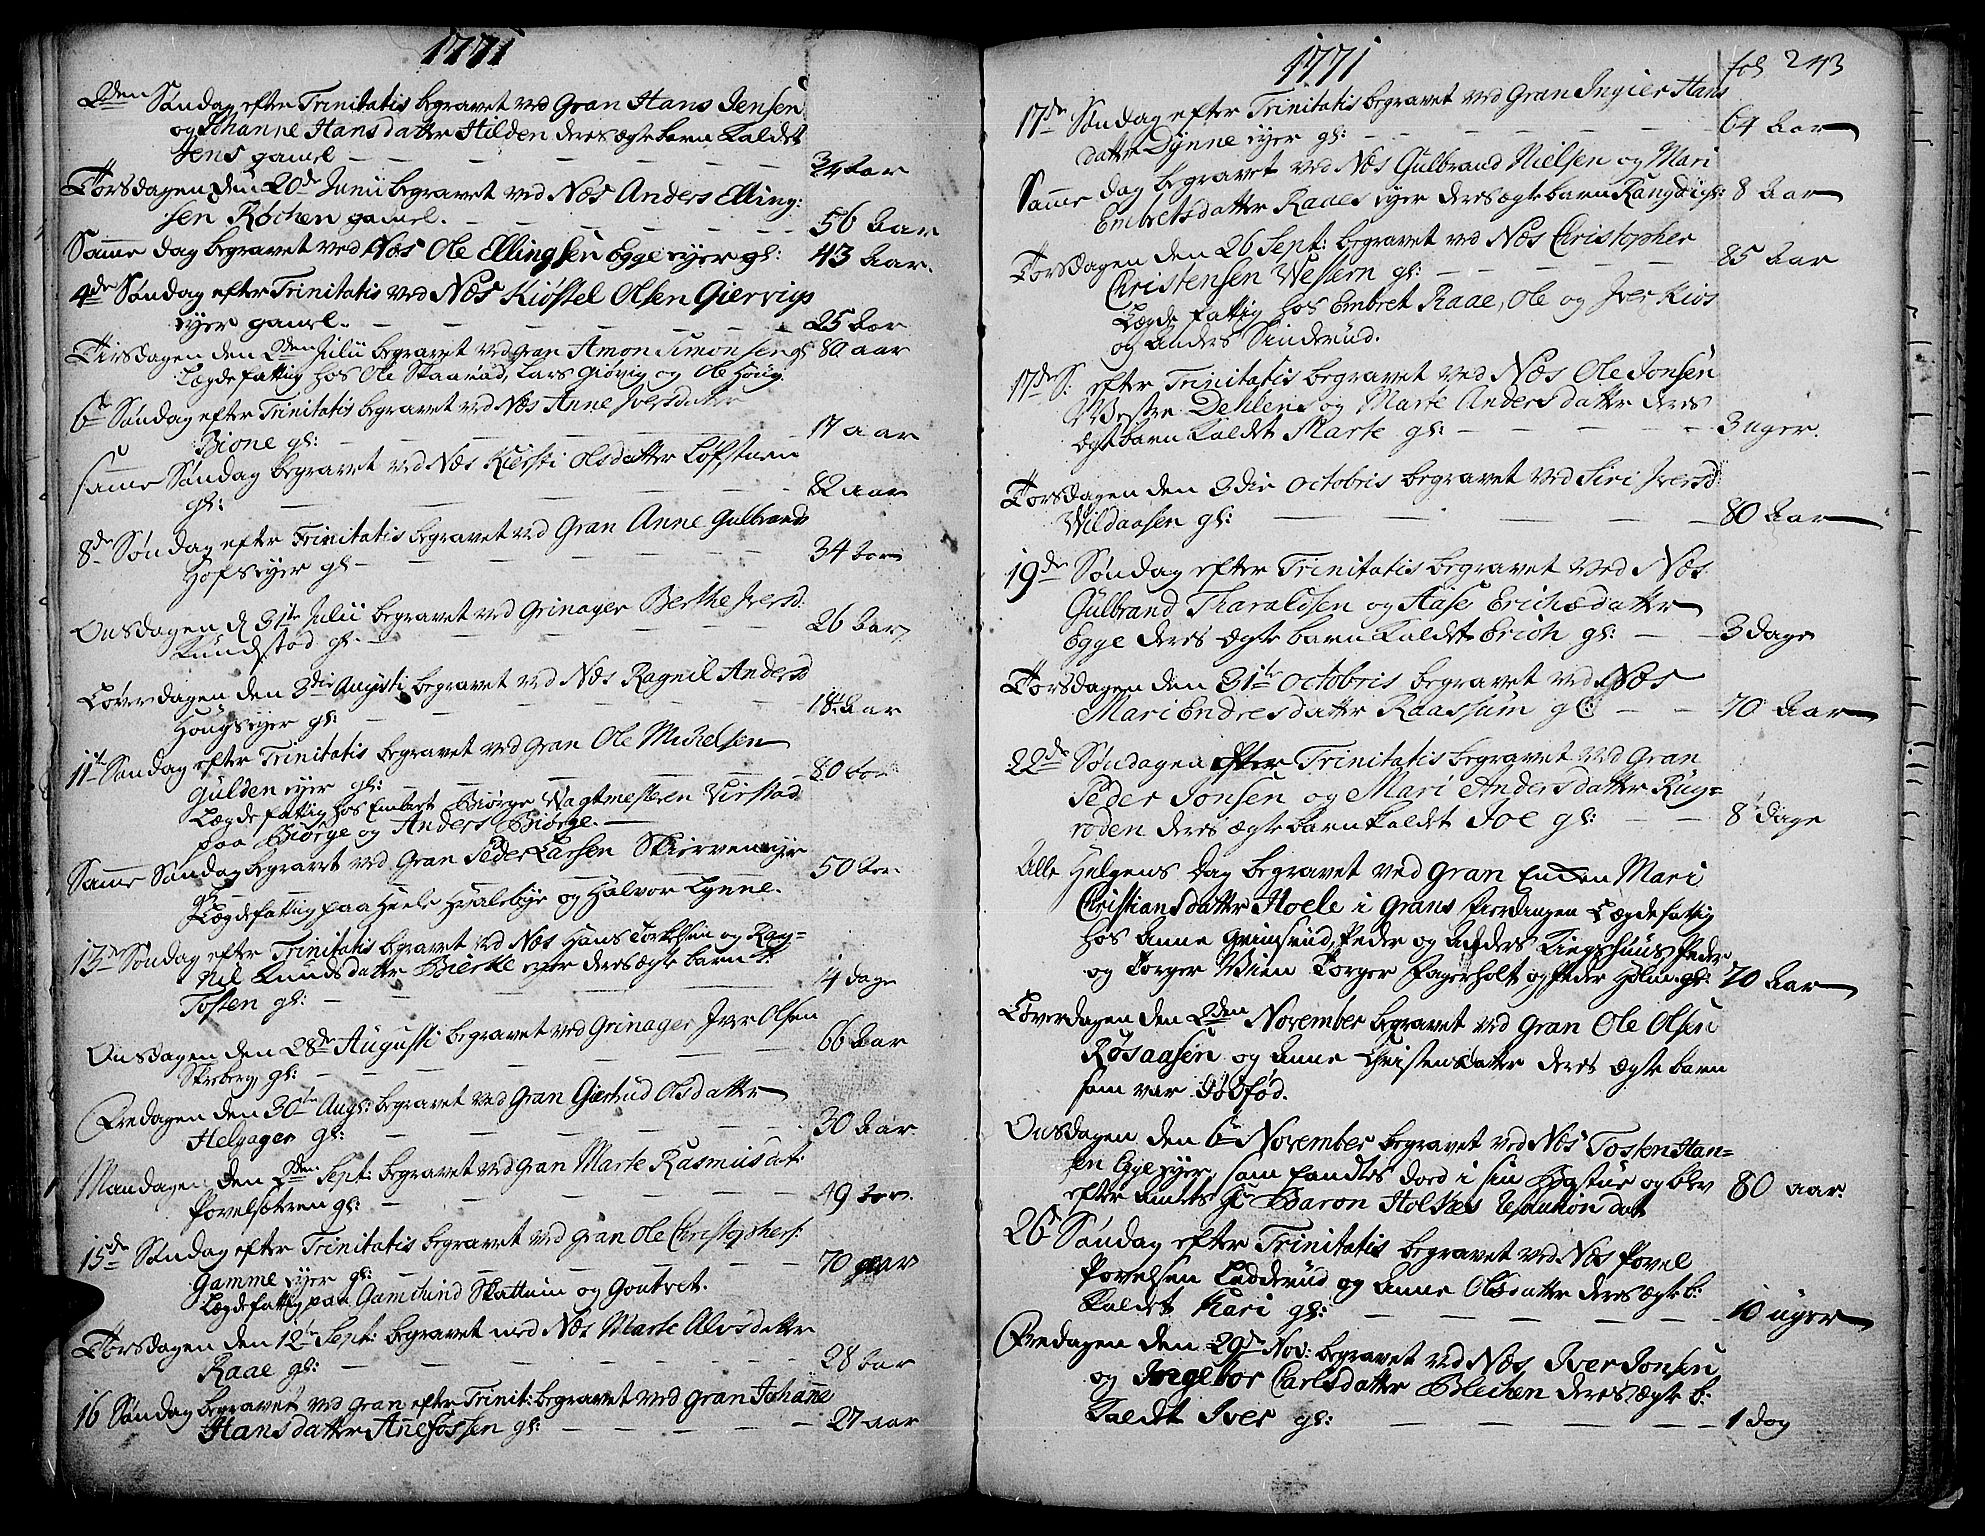 1771
2den Søndag efter Trinitatis begravet ved Gran Hans Jensen
og Johanne Hansdatter Hilden deres ægte barn kaldet
Jens gamel
3/4 aar
Torsdagen den 20de Junii begravet ved Næs Anders Elling:
sen Røchen gamel.
56 aar
Samme dag begravet ved Næs Ole Ellingsen Egge eyer gl: 43 aar.
4de Søndag efter Trinitatis ved Næs Kiøstel Olsen Giervigs
eyer gamel.
25 aar
Tirsdagen den 2den Julii begravet ved Gran Amon Simonsen gl 80 aar
Lægdefattig hos Ole Skaarud, Lars Giøvig og Ole Houg.
6te Søndag efter Trinitatis begravet ved Næs Anne Iversdatter
Bione gl:
17 aar
samme Søndag begravet ved Næs Kiersti Olsdatter Lofstuen
gl:
82 aar
8de Søndag efter Trinitatis begravet ved Gran Anne Gulbrands
Hofseyer gl
34 aar
Onsdagen d 31te Julii begravet ved Grinager Berthe Iversd:
Kundstad gl
26 aar
Løverdagen den 3die Augusti begravet ved Næs Ragnil Andersd
Hougseyer gl:
18 aar
11te Søndag efter Trinitatis begravet ved Gran Ole Michelsen
Gulden eyer gl:
80 aar
Lægdefattig hos Embret Biørge Wagtmesteren Virstad
paa Biørge og Anders Biørge.
Samme Søndag begravet ved Gran Peder Larsen Skierven eyer
gl
50 aar
Lægdefattig paa Heele Hvaleby og Halvor Lynne.
13de Søndag efter Trinitatis begravet ved Næs Hans Torkelsen og Rag=
nil Knudsdatter Bierke eyer deres ægte barn
Tosten gl:
4 dage
Onsdagen den 28de Augusti begravet ved Grinager Iver Olsen
Skieberg gl:
66 aar
Fredagen den 30te Aug: begravet ved Gran Giertrud Olsdatter
Helgager gl:
30 aar
Mandagen den 2den Sept: begravet ved Gran Marte Rasmusdat:
Povelsetren gl:
49 aar.
15de Søndag efter Trinitatis begravet ved Gran Ole Christophers:
Gamme eyer gl:
70 aar
Lægdefattig paa Gamlund Skattum og Goutvet.
Torsdagen den 12te Sept: begravet ved Næs Marte Alvsdatter
Raae gl:
28 aar
16 Søndag begravet ved Gran efter Trinit: begravet ved Gran Johanne
Hansdatter Anefossen gl:
27 aar
1771
fol 243
17de Søndag efter Trinitatis begravet ved Gran Ingier Hans
datter Dynne eyer gl:
64 aar
Samme dag begravet ved Næs Gulbrand Nielsen og Mari
Embretsdatter Raaes eyer deres ægte barn Rangdi gl: 8 aar
Torsdagen den 26 Sept: begravet ved Næs Christopher
Christensen Western gl:
85 aar
Lægde fattig hos Embret Raae, Ole og Iver Kios
og Anders Sinderud.
17de S: efter Trinitatis begravet ved Næs Ole Jonsen
Westre Dehlens og Marte Andersdatter deres
ægte barn kaldet Marte gl:
3 uger.
Torsdagen den 3die Octobris begravet ved Siri Iversd:
Wildaasen gl:
80 aar
19de Søndag efter Trinitatis begravet ved Næs
Gulbrand Tharaldsen og Aase Erichsdatter
Egge deres ægte barn kaldet Erich gl:
3 dage
Torsdagen den 31te Octobris begravet ved Næs
Mari Endresdatter Raassum gl:
70 aar
22de Søndagen efter Trinitatis begravet ved Gran
Peder Jonsen og Mari Andersdatter Rug=
roden deres ægte barn kaldet Joe gl:
8 dage
Alle Helgens Dag begravet ved Gran Enken Mari
Christiansdatter Hoele i Grans fierdingen Lægdefattig
hos Anne Grimsrud, Peder og Anders Kiegshuus, Peder
og Torger Wien Torger Fagerholt og Peder Holm gl: 70 aar
Løverdagen den 2den November begravet ved Gran Ole Olsen
Røsaasen og Anne Christensdatter deres ægte barn
som var dødfød.
Onsdagen den 6te November begravet ved Næs Tosten Han=
sen Egge eyer, som fandtes doed i sin Bastue og blev
efter Amtets Hr Baron Holkes Resolution dat
80 aar.
26 Søndag efter Trinitatis begravet ved Næs Povel
Povelsen Ledderud og Anne Olsdatter deres ægte b:
kaldet Kari gl:
10 uger
Fredagen den 29de Nov: begravet ved Næs Iver Jonsen
og Ingebor Carlsdatter Blechen deres ægte b:
kaldet Iver gl:
1 dag